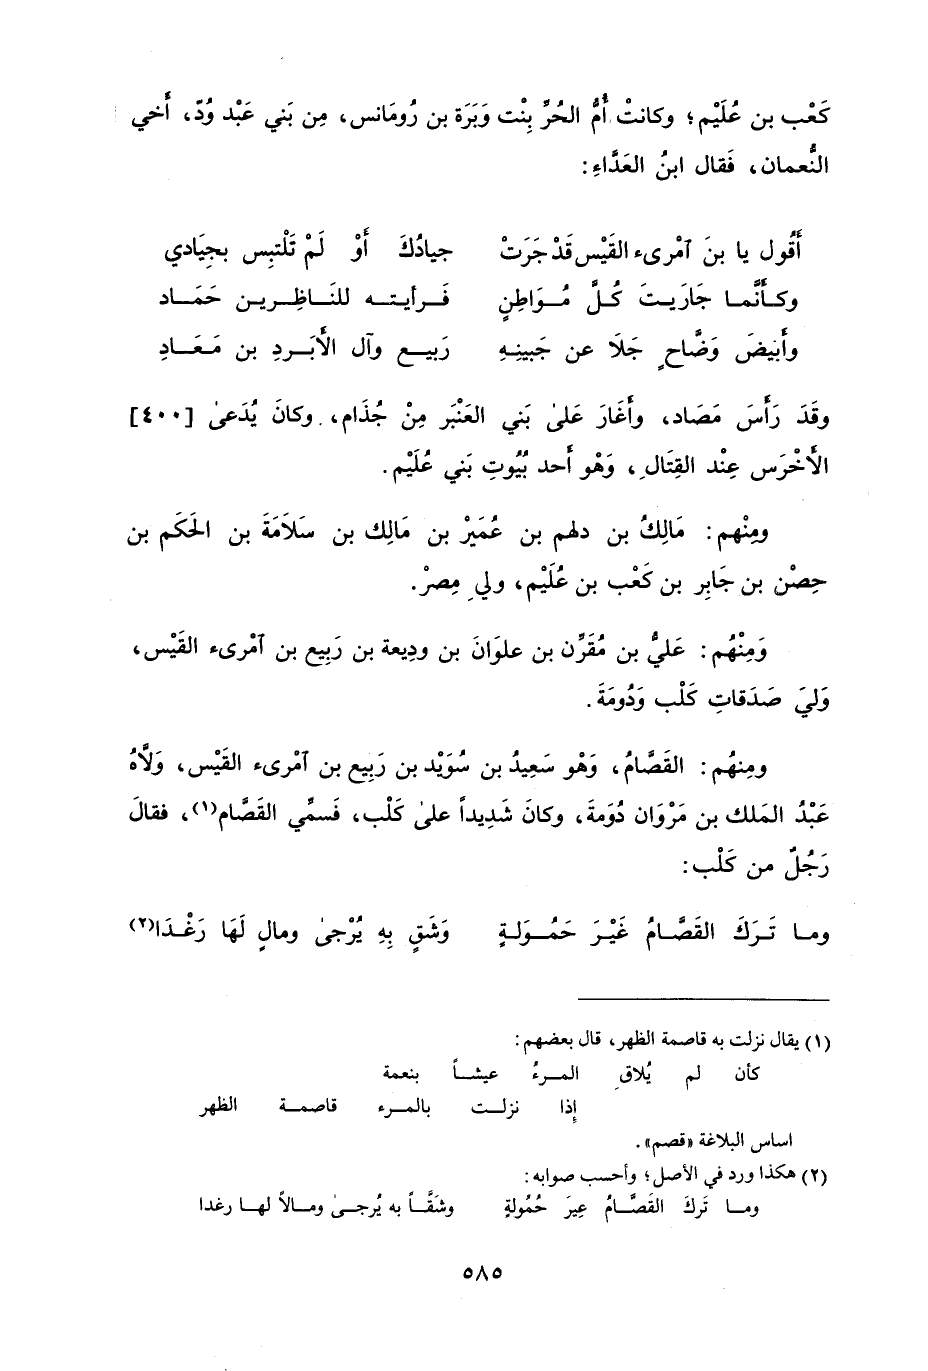 كَعْب بن عُلَيْم؛ وكانتْ أُمُّ الحُرِّ بِنْت وَبَرَة بن رُومَانس، مِن بَني عَبْد وُدّ، أَخي
النُّعمان، فَقال ابنُ العَدَّاءِ:
أَقُول يا بنَ آمْرىء القَيْس قَدْ جَرَتْ جيادُكَ أَوْ لَمْ تَلْتبِس بجِيَادي
وكـأَنَّمـا جَارَيـتَ كُـلَّ مُـوَاطِنٍ فَـرأيتـه للنَـاظِـريـن حَمَـاد
وأَبيَضَ وَضَّاحٍ جَلَا عن جَبينِـهِ رَبيـع وآل الأَبَـردِ بن مَعَـادِ
وقَدَ رَأَسَ مَصَاد، وأَغَارَ عَلىٰ بَني العَنْبَر مِنْ جُذَام، وكانَ يُدَعىٰ [٤٠٠]
الأَخْرَس عِنْد القِتَالِ، وَهْو أَحد بُيُوتِ بَني عُلَيْم.
ومِنْهم: مَالِكُ بن دلهم بن عُمَيَرْ بن مَالِك بن سَلَامَةَ بن الحَكَم بن
حِصْن بن جَابِر بن كَعْب بن عُلَيْم، ولي مِصرْ.
وَمِنْهُم: عَليُّ بن مُقَرِّن بن علوَانَ بن ودِيعة بن رَبيع بن آمْرىء القَيْس،
وَليَ صَدَقاتِ كَلْب وَدُومَةَ.
ومِنهُم: القَصَّامُ، وَهْو سَعِيدُ بن سُوَيْد بن رَبيع بن آمْرىء القَيْس، وَلَّاهُ
عَبْدُ المَلك بن مَرْوَان دُوَمةَ، وكانَ شَدِيداً علىٰ كَلْب، فَسمِّي القَصَّام(١)، فقالَ
رَجُلٌ من كَلْب:
ومـا تَـرَكَ القَصَّـامُ غَيْـرَ حَمُـولـةٍ وَشَقٍ بِهِ يُرْجىٰ ومالٍ لَهَا رَغْـدَا(٢)
(١) يقال نزلت به قاصمة الظهر، قال بعضهم:
كأن لم يُلاقِ المـرءُ عيشـاً بنعمة
إِذا نزلـت بالمـرء قاصمـة الظهر
اساس البلاغة «قصم».
(٢) هكذا ورد في الأصل؛ وأحسب صوابه:
ومـا تَركَ القَصَّـامُ عِيرَ حُمُولةٍ وشَقَّـاً به يُرجـىٰ ومـالاً لهـا رغدا
٥٨٥